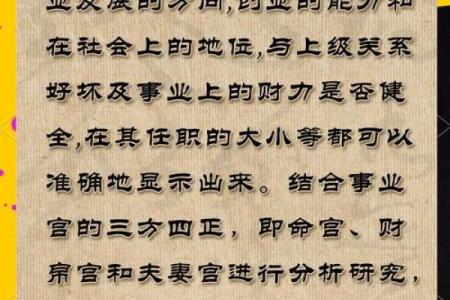 业发展的方向,创业的能力和
在社会上的地位,与上级关系
好坏及事业上的财力是否健
全,在其任职的大小等都可以
准确地显示出来。结合事业
宫的三方四正，即命宫、财
帛宫和夫妻宫进行分析研究，